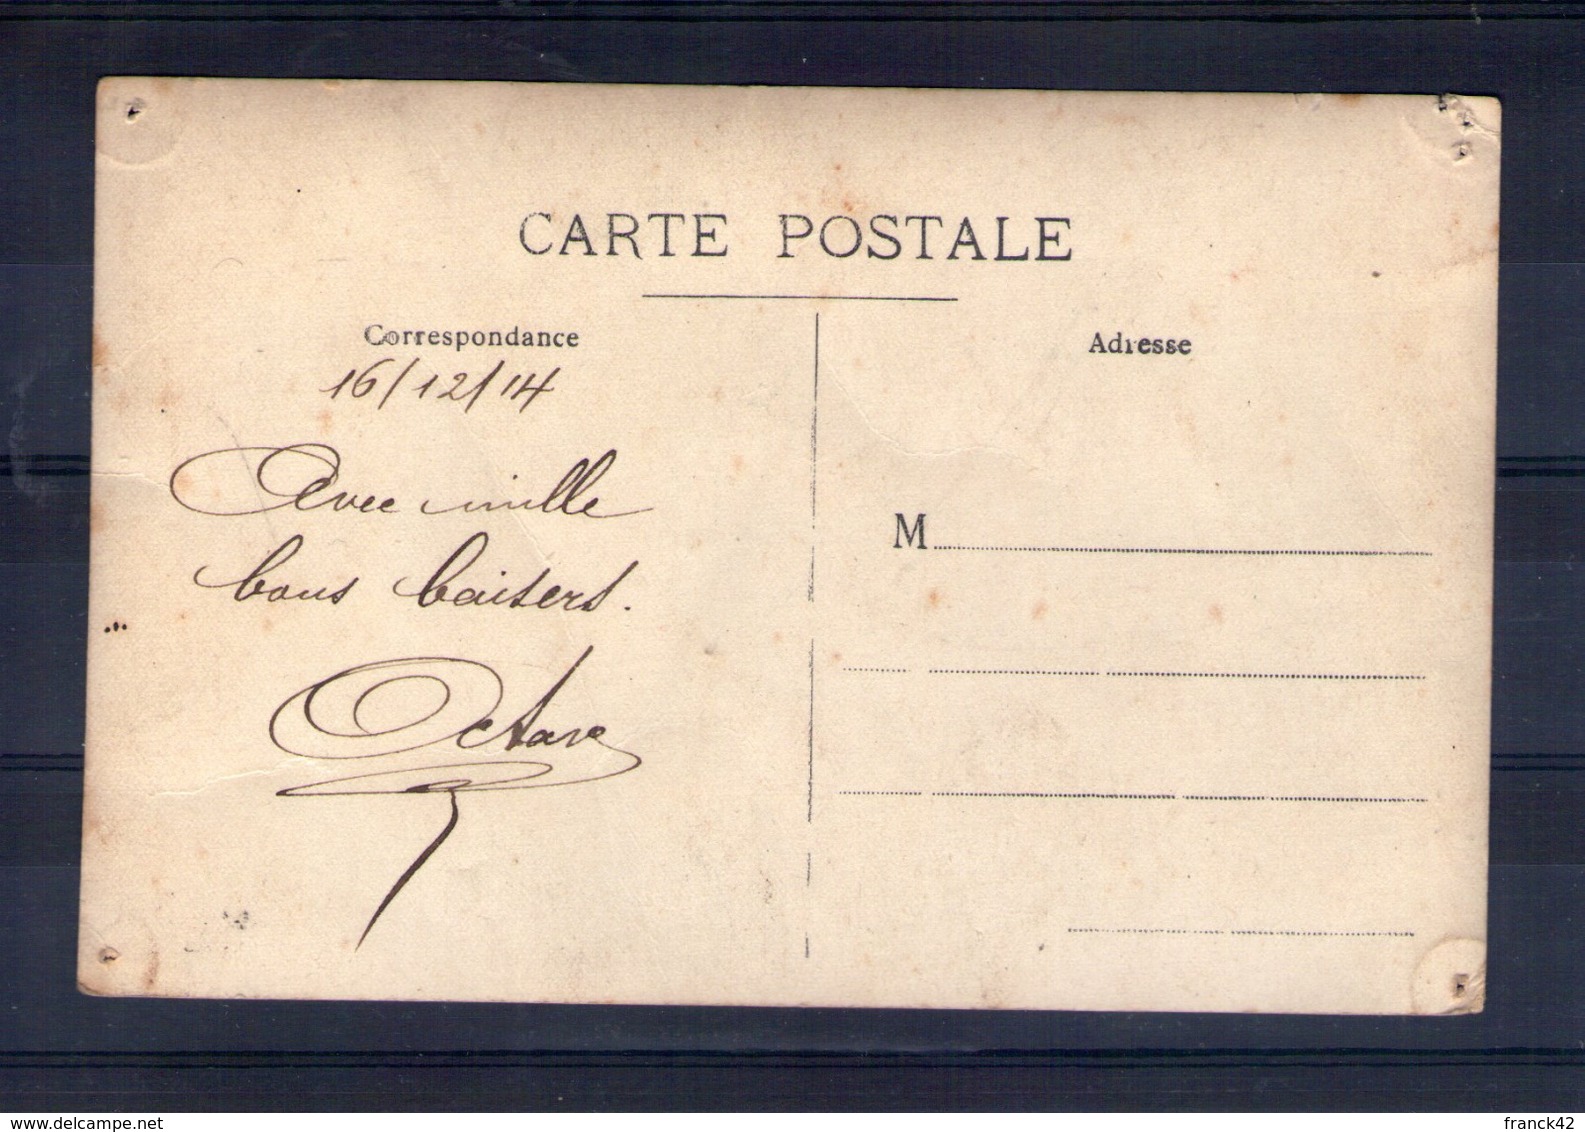 CARTE POSTALE
Correspondance
16/12/14
Avec mille
bons baisers.
Octave
Adresse
M
www.delcampe.net
franck42